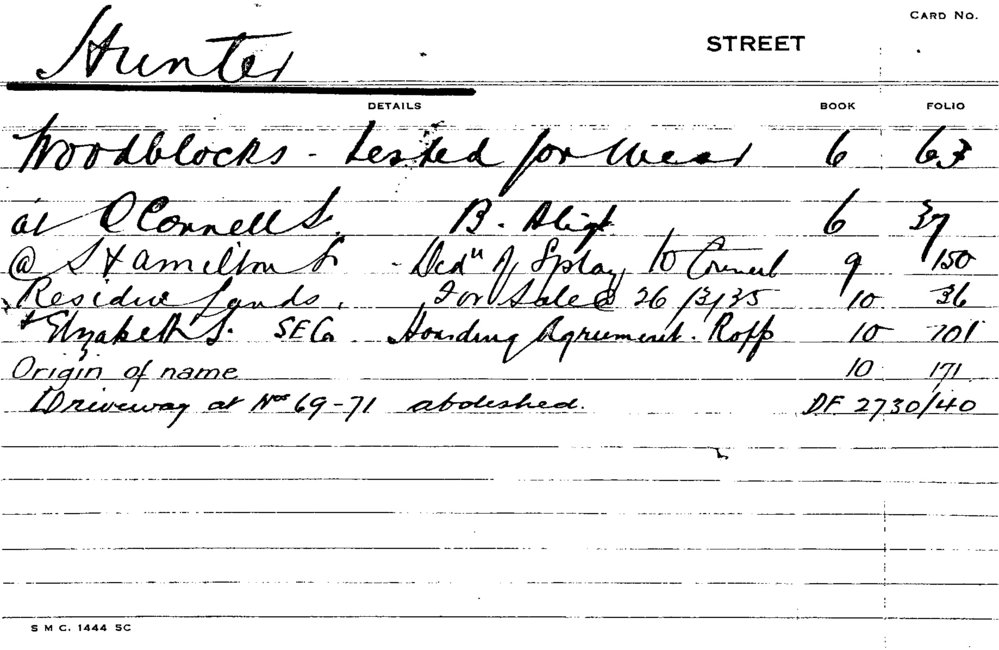 CARD NO.
Hunter STREET
DETAILS BOOK FOLIO
Woodblocks - tested for wear 6 63
at O'Connell St. B. Align 6 37
@ S Hamilton St - Dedn of Splay to Council 9 150
Residue Lands. For Sale @ 26/3/35 10 36
+ Elizabeth St. SE Cr Hoarding Agreement. Ropp 10 101
Origin of name 10 171
Driveway at Nos 69-71 abolished. DF 2730/40
S M C. 1444 SC